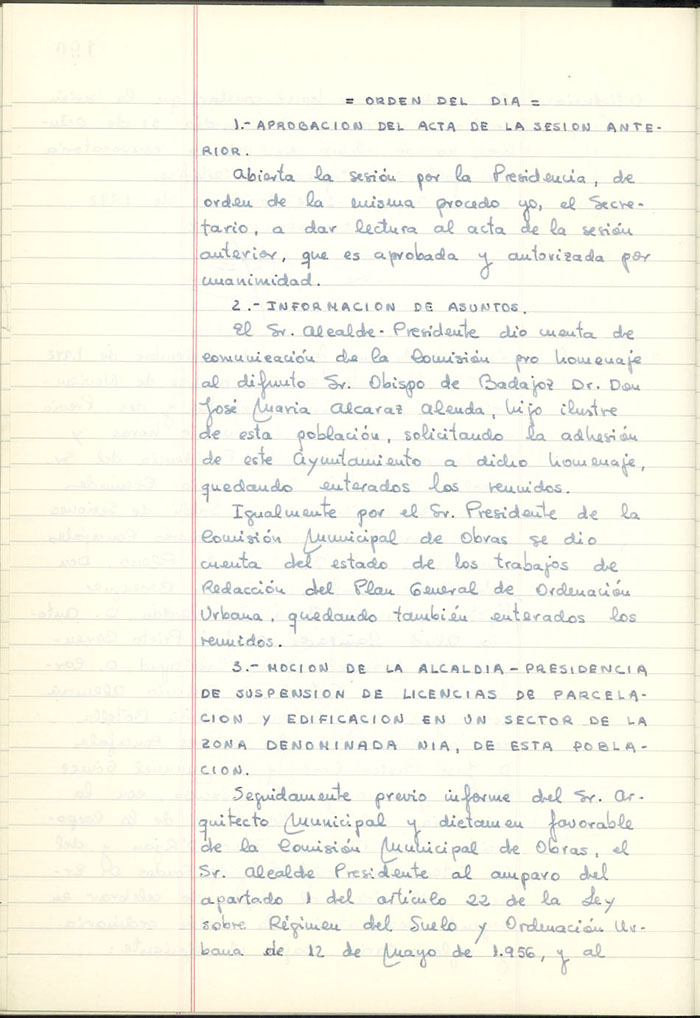 = ORDEN DEL DIA =
1.- APROBACION DEL ACTA DE LA SESION ANTE-
RIOR.
Abierta la sesión por la Presidencia, de
orden de la misma procedo yo, el Secre-
tario, a dar lectura al acta de la sesión
anterior, que es aprobada y autorizada por
unanimidad.
2.- INFORMACION DE ASUNTOS.
El Sr. Alcalde-Presidente dio cuenta de
comunicación de la Comisión pro homenaje
al difunto Sr. Obispo de Badajoz Dr. Don
José Maria Alcaraz Alenda, hijo ilustre
de esta población, solicitando la adhesión
de este Ayuntamiento a dicho homenaje,
quedando enterados los reunidos.
Igualmente por el Sr. Presidente de la
Comisión Municipal de Obras se dio
cuenta del estado de los trabajos de
Redacción del Plan General de Ordenación
Urbana, quedando también enterados los
reunidos.
3.- MOCION DE LA ALCALDIA-PRESIDENCIA
DE SUSPENSION DE LICENCIAS DE PARCELA-
CION Y EDIFICACION EN UN SECTOR DE LA
ZONA DENOMINADA NIA, DE ESTA POBLA-
CION.
Seguidamente previo informe del Sr. Ar-
quitecto Municipal y dictamen favorable
de la Comisión Municipal de Obras, el
Sr. Alcalde Presidente al amparo del
apartado 1 del artículo 22 de la Ley
sobre Régimen del Suelo y Ordenación Ur-
bana de 12 de Mayo de 1.956, y al